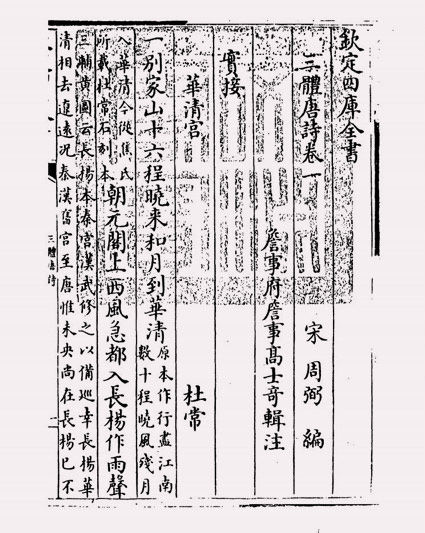 欽定四庫全書
三體唐詩卷一
宋 周弼 編
詹事府詹事高士奇輯注
實接
華清宮 杜常
一別家山十六程曉來和月到華清
原本作行盡江南
數十程曉風殘月
入華清今從焦氏
所載杜常石刻本
朝元閣上西風急都入長楊作雨聲
三輔黄圖云長楊本秦宮漢武修之以備巡幸長楊華
清相去遼遠況秦漢舊宮至唐惟未央尚在長楊已不
三體唐詩